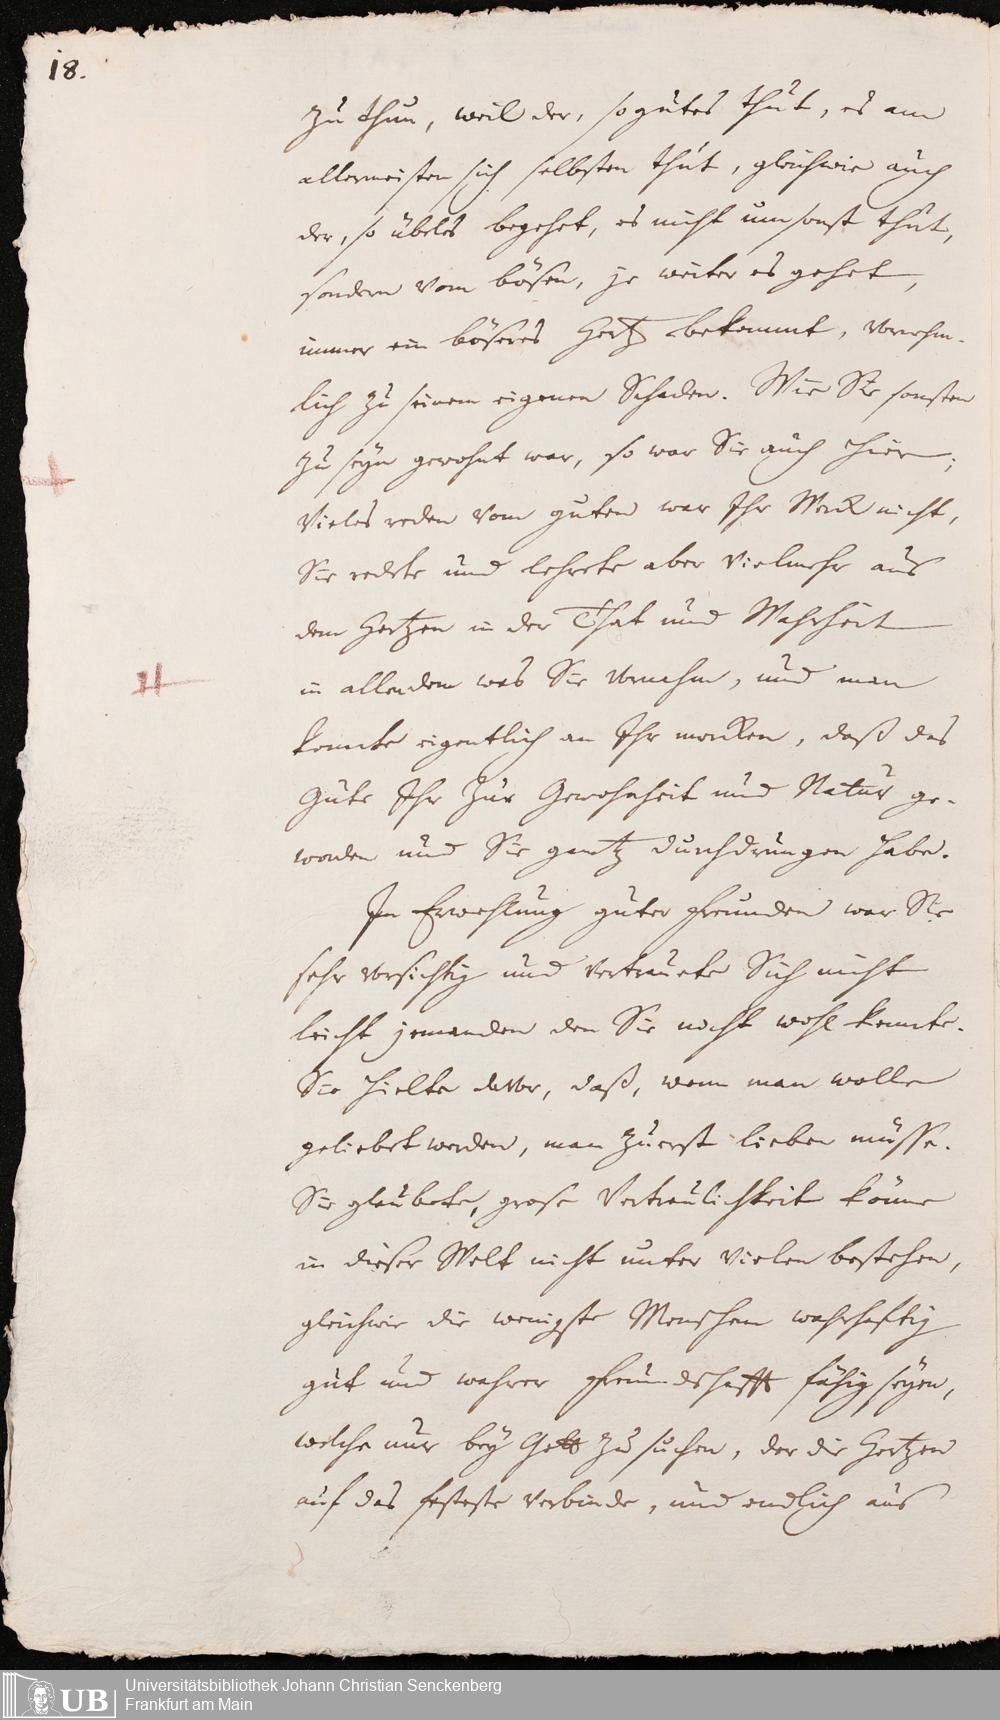 18.
zu thun, weil der, so gutes thut, es am
allermeisten sich selbsten thut, gleichwie auch
der, so übels begehet, es nicht umsonst thut,
sondern vom bösen, je weiter es gehet,
immer ein böseres Hertz bekommt, vornehm-
lich zu seinem eigenen Schaden. Wie Sie sonsten
zu seyn gewohnt war, so war Sie auch hier;
Vieles reden vom guten war Ihr Werck nicht,
Sie redete und lehrete aber vielmehr aus
dem Hertzen in der That und Wahrheit
in allendem was Sie vornahm, und man
konnte eigentlich an Ihr mercken, daß das
Gute Ihr zur Gewohnheit und Natur ge-
worden und Sie gantz durchdrungen habe.
In Erwehlung guter Freunden war Sie
sehr vorsichtig und vertrauete Sich nicht
leicht jemanden den Sie nicht wohl kennte.
Sie hielte davor, daß, wenn man wolle
geliebet werden, man zuerst lieben müsse.
Sie glaubete, grose Vertraulichkeit könne
in dieser Welt nicht unter vielen bestehen,
gleichwie die wenigste Menschen wahrhaftig
gut und wahrer Freundschafft fähig seyen,
welche nur bey Gott zu suchen, der die Hertzen
auf das festeste verbinde, und endlich aus
UB
Universitätsbibliothek Johann Christian Senckenberg
Frankfurt am Main